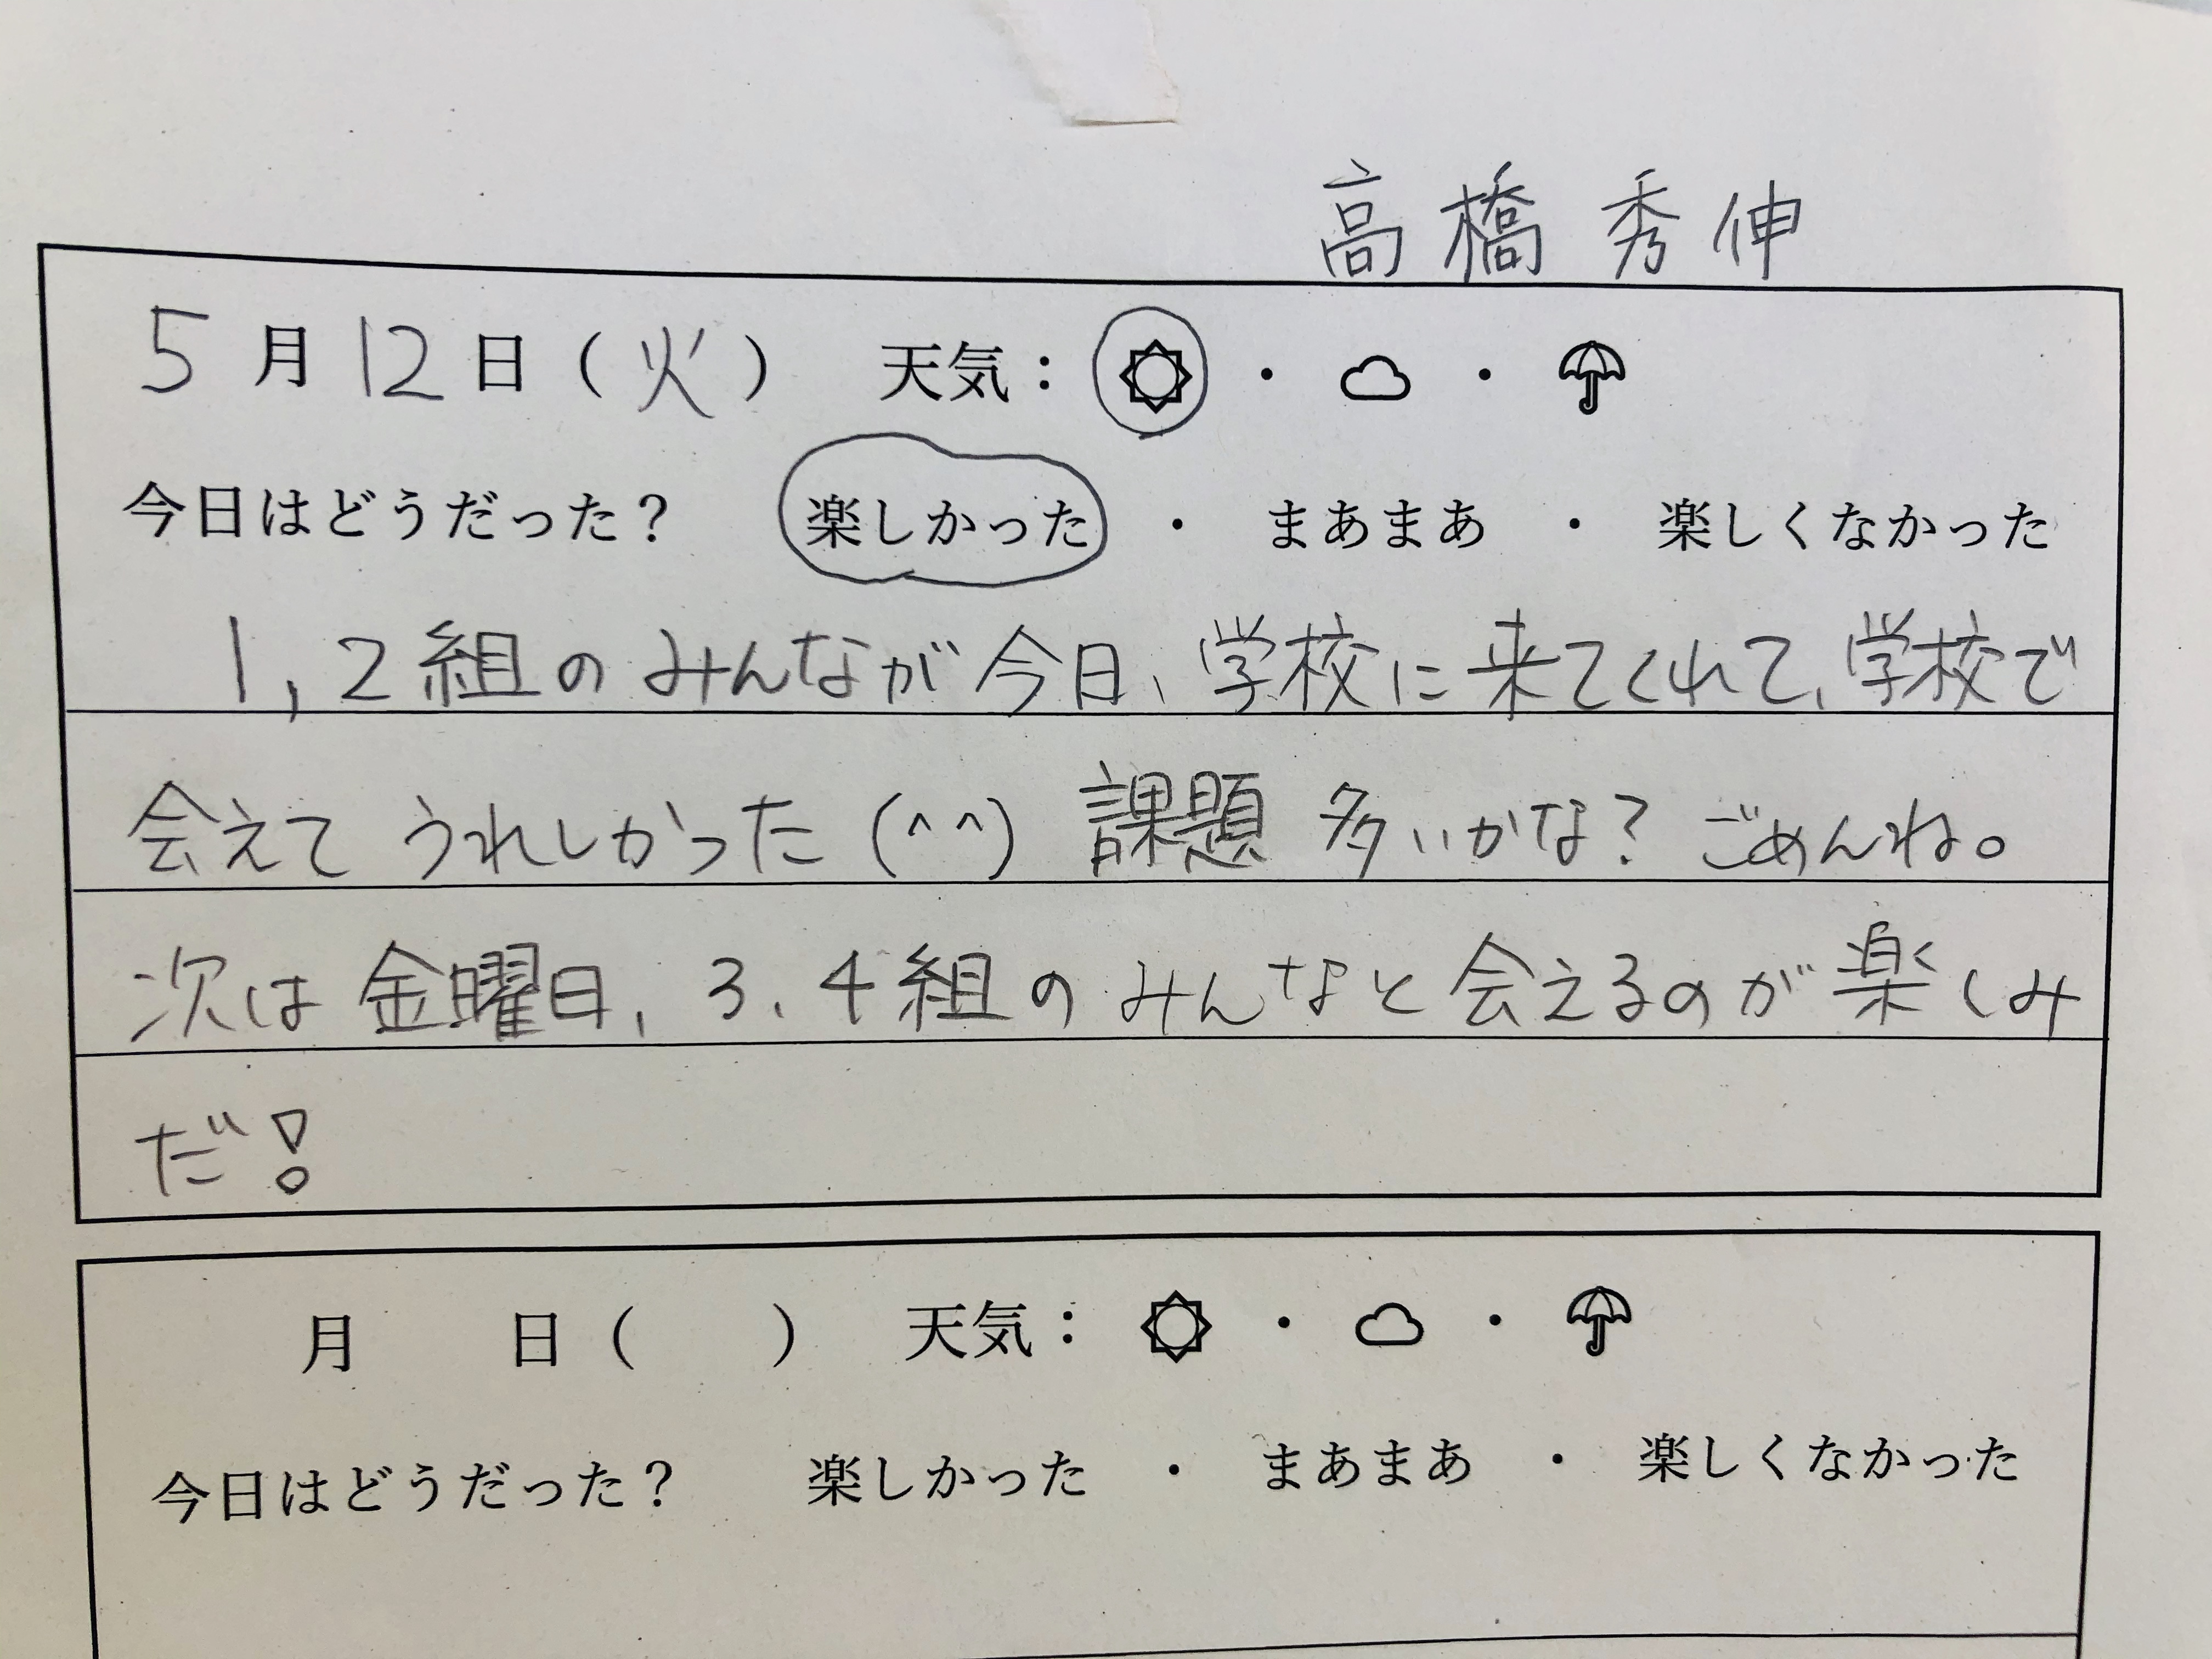 高橋秀伸
5月12日（火） 天気：☼・☁・☂
今日はどうだった？ 楽しかった ・ まあまあ ・ 楽しくなかった
1,2組のみんなが今日、学校に来てくれて、学校で
会えて うれしかった(^^) 課題 多いかな？ ごめんね。
次は金曜日、3、4組のみんなと会えるのが楽しみ
だ！
月 日（ ） 天気：☼・☁・☂
今日はどうだった？ 楽しかった ・ まあまあ ・ 楽しくなかった